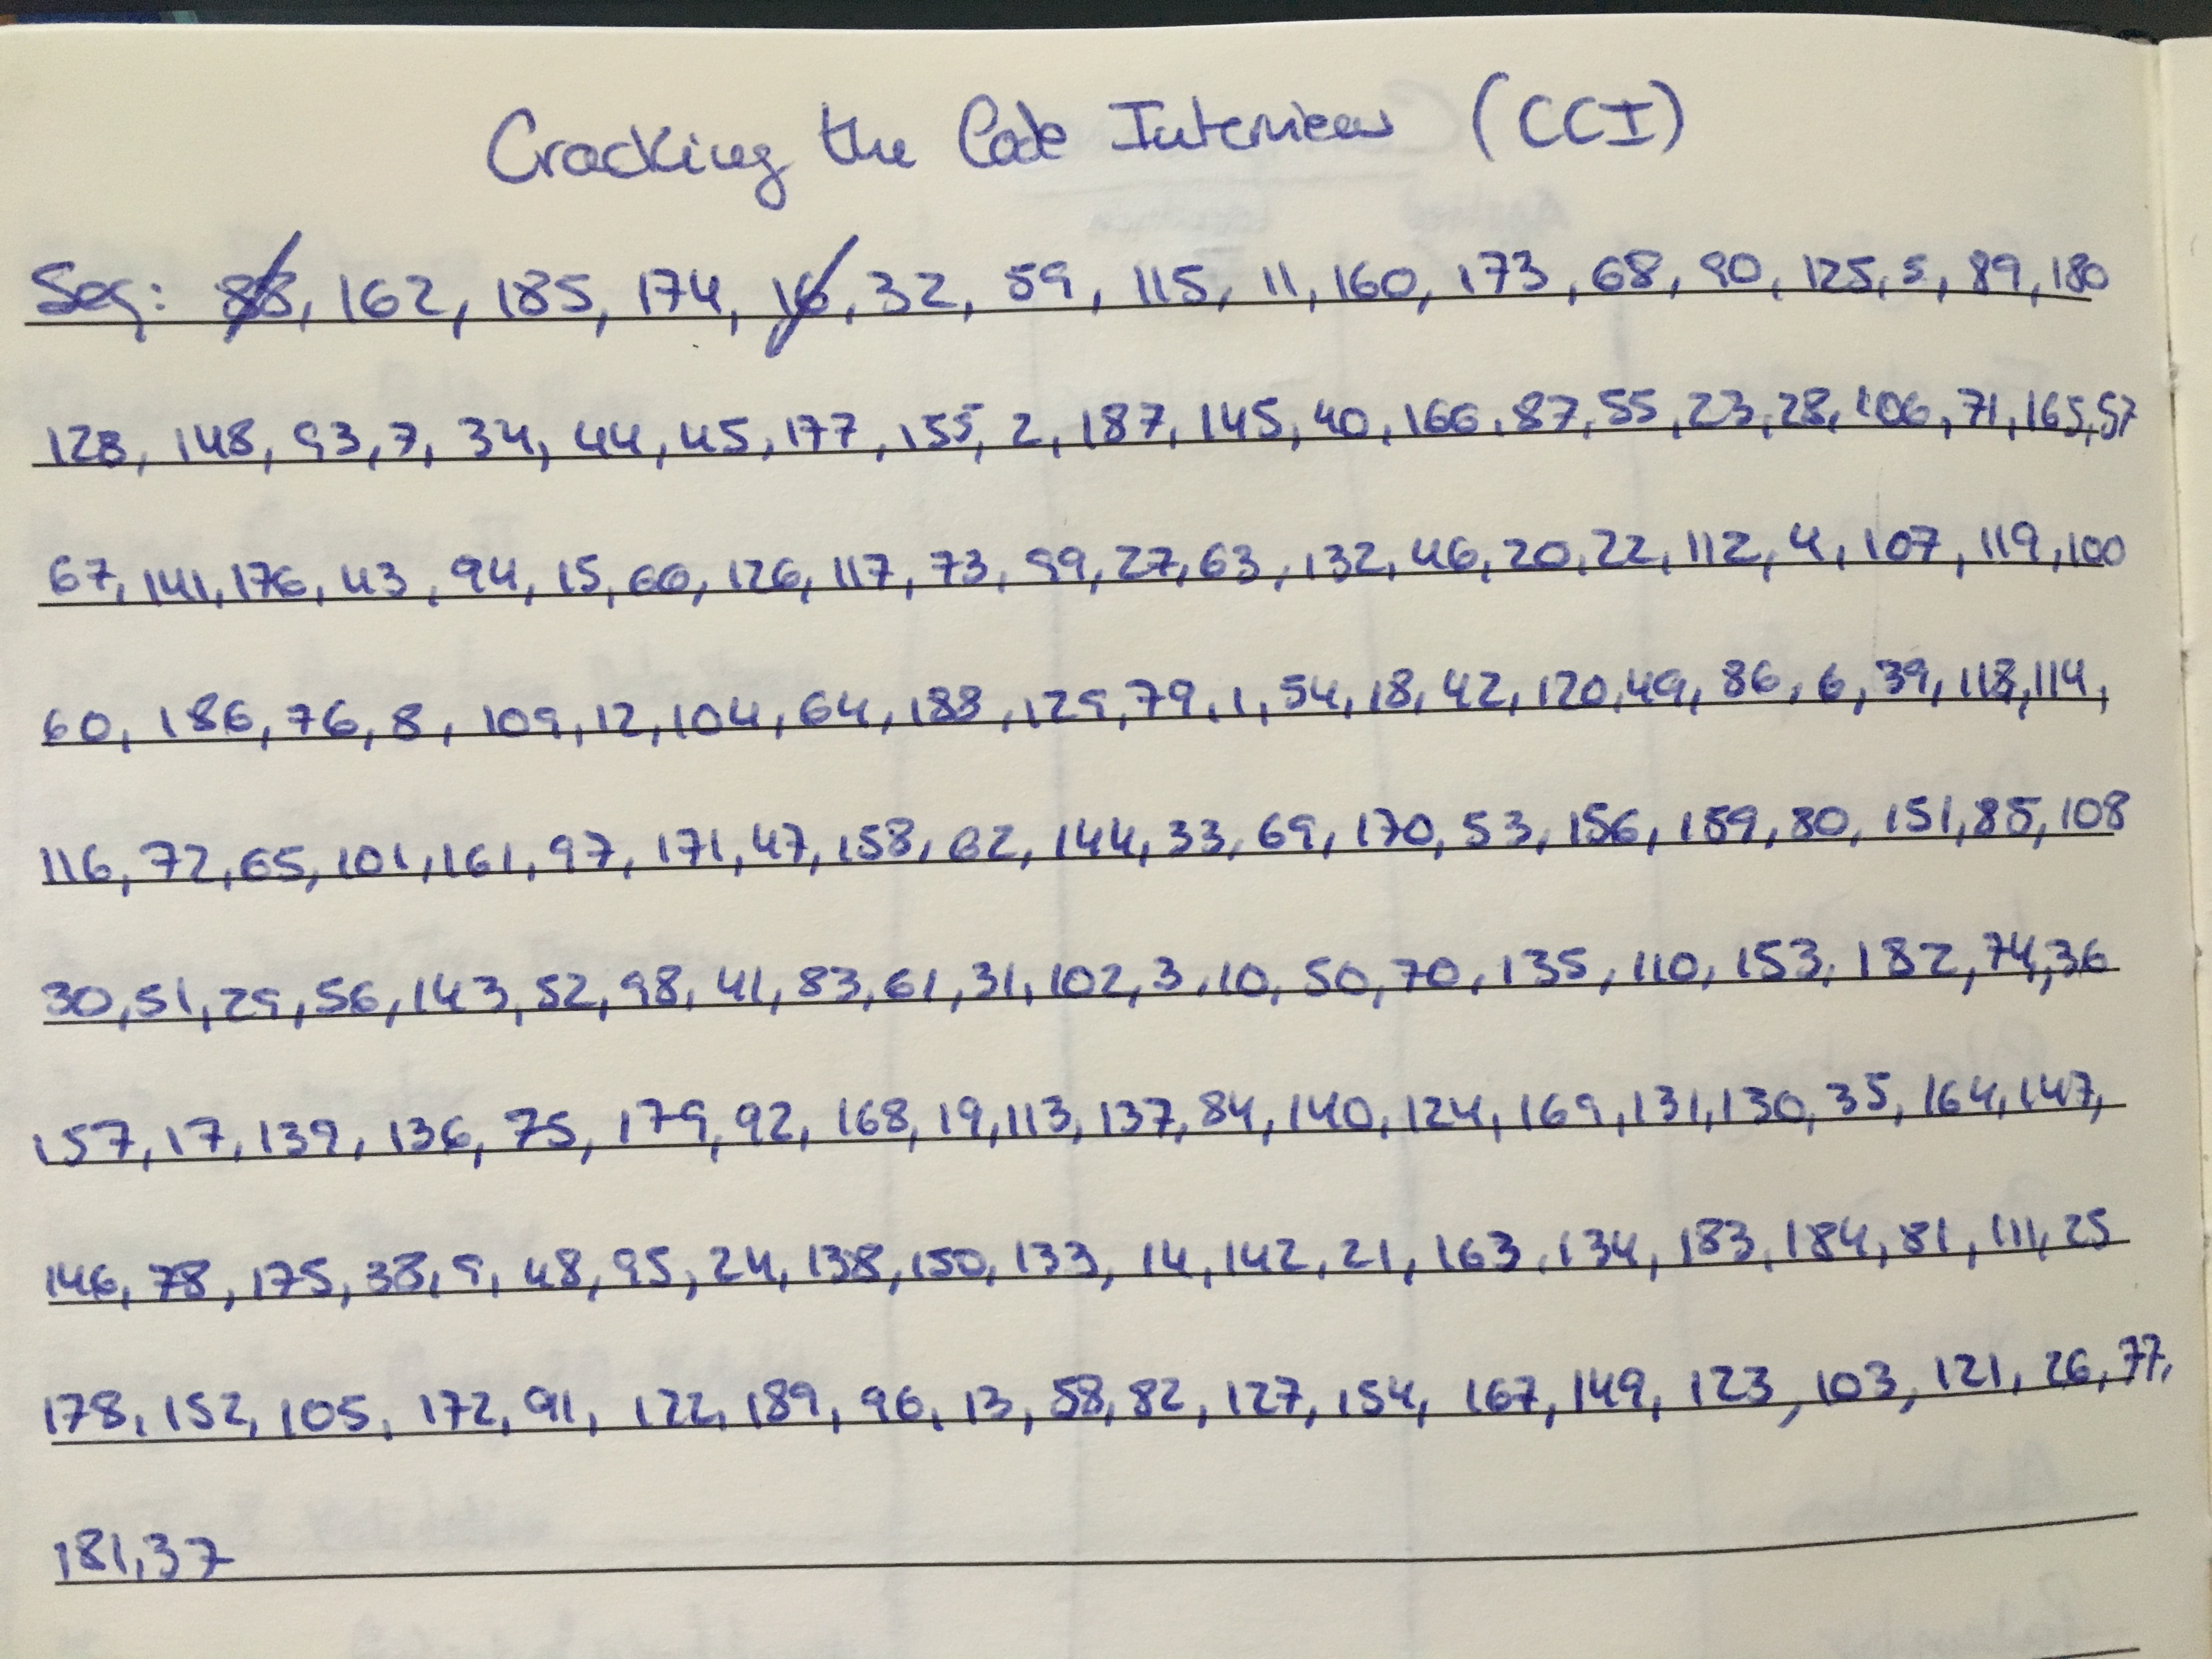 Cracking the Code Interview (CCI)
Seq: 88, 162, 185, 174, 16, 32, 59, 115, 11, 160, 173, 68, 90, 125, 5, 89, 180
128, 148, 93, 7, 34, 44, 45, 177, 155, 2, 187, 145, 40, 166, 87, 55, 23, 28, 106, 71, 165, 57
67, 141, 176, 43, 94, 15, 66, 126, 117, 73, 99, 27, 63, 132, 46, 20, 22, 112, 4, 107, 119, 100
60, 186, 76, 8, 109, 12, 104, 64, 188, 129, 79, 1, 54, 18, 42, 120, 49, 86, 6, 39, 118, 114,
116, 72, 65, 101, 161, 97, 171, 47, 158, 62, 144, 33, 69, 170, 53, 156, 159, 80, 151, 85, 108
30, 51, 29, 56, 143, 52, 98, 41, 83, 61, 31, 102, 3, 10, 50, 70, 135, 110, 153, 182, 74, 36
157, 17, 139, 136, 75, 179, 92, 168, 19, 113, 137, 84, 140, 124, 169, 131, 130, 35, 164, 147,
146, 78, 175, 38, 9, 48, 95, 24, 138, 150, 133, 14, 142, 21, 163, 134, 183, 184, 81, 111, 25
178, 152, 105, 172, 91, 122, 189, 96, 13, 58, 82, 127, 154, 167, 149, 123, 103, 121, 26, 77,
181, 37